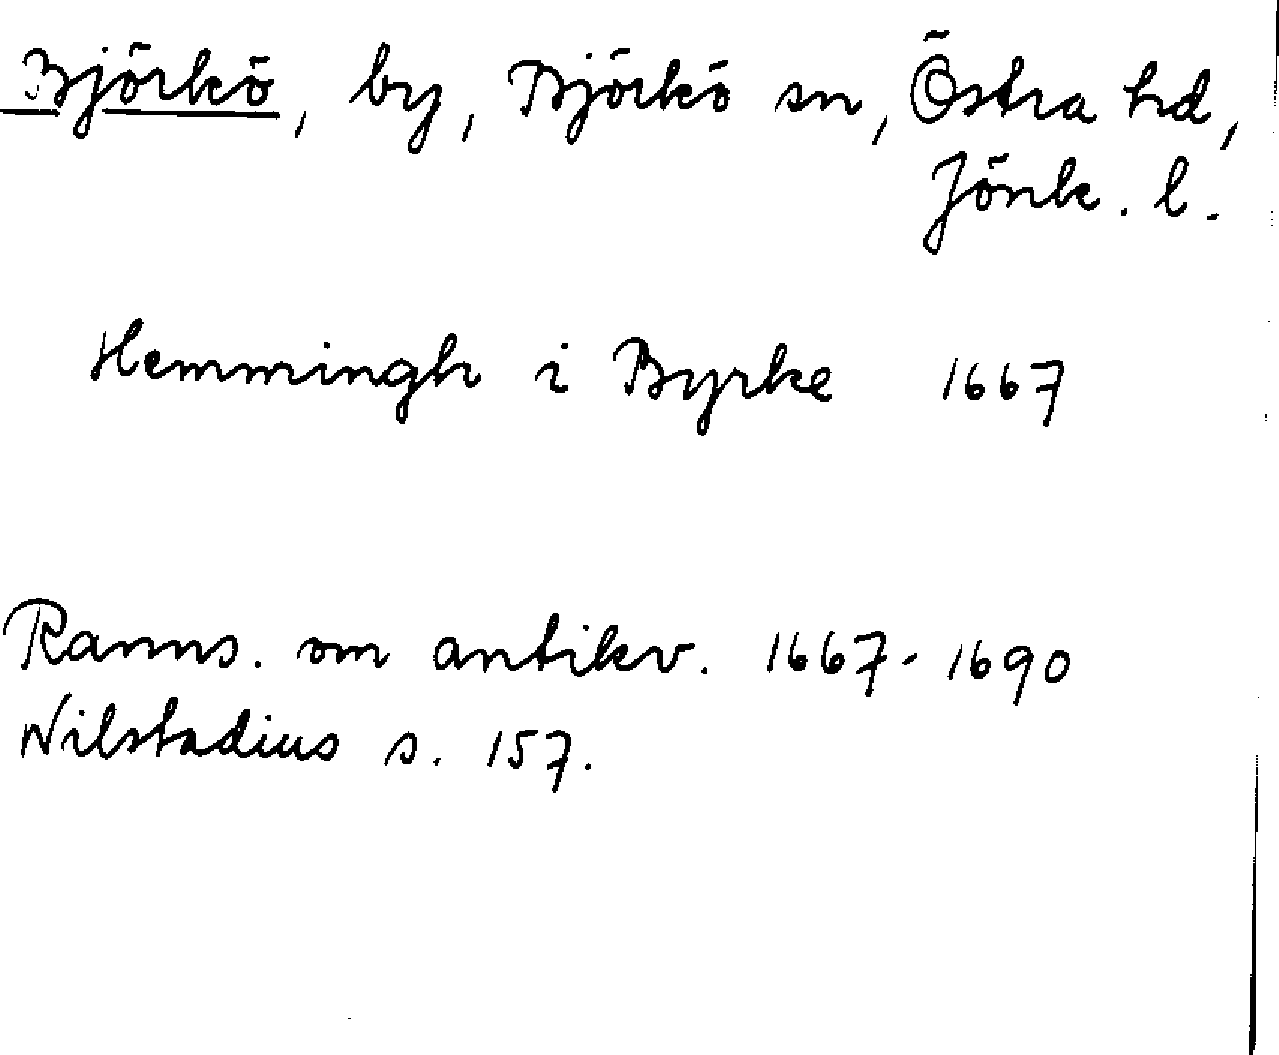 Björkö, by, Björkö sn, Östra hd,
Jönk. l.
Hemmingh i Byrke 1667
Ranns. om antikv. 1667-1690
Nilstadius s. 157.